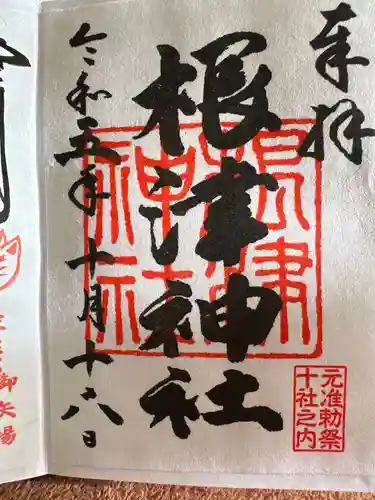 奉拝
根津神社
根津神社
令和五年十月十六日
元准勅祭
十社之内